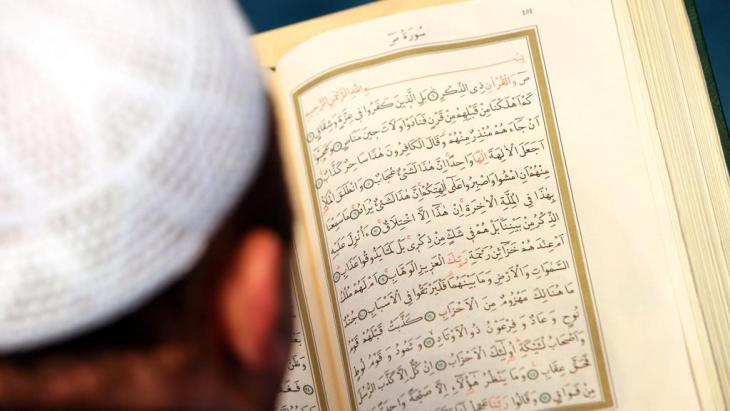 سُورَةُ صٓ
بِسْمِ اللّٰهِ الرَّحْمٰنِ الرَّحِيمِ
صٓ وَالْقُرْاٰنِ ذِي الذِّكْرِ ۝ بَلِ الَّذِينَ كَفَرُوا فِي عِزَّةٍ وَشِقَاقٍ ۝
كَمْ اَهْلَكْنَا مِنْ قَبْلِهِمْ مِنْ قَرْنٍ فَنَادَوْا وَلَاتَ حِينَ مَنَاصٍ ۝ وَعَجِبُوا
اَنْ جَاءَهُمْ مُنْذِرٌ مِنْهُمْ وَقَالَ الْكَافِرُونَ هٰذَا سَاحِرٌ كَذَّابٌ ۝
اَجَعَلَ الْاٰلِهَةَ اِلٰهًا وَاحِدًا اِنَّ هٰذَا لَشَيْءٌ عُجَابٌ ۝ وَانْطَلَقَ الْمَلَأُ
مِنْهُمْ اَنِ امْشُوا وَاصْبِرُوا عَلٰى اٰلِهَتِكُمْ اِنَّ هٰذَا لَشَيْءٌ يُرَادُ ۝ مَا سَمِعْنَا
بِهٰذَا فِي الْمِلَّةِ الْاٰخِرَةِ اِنْ هٰذَا اِلَّا اخْتِلَاقٌ ۝ ءَاُنْزِلَ عَلَيْهِ
الذِّكْرُ مِنْ بَيْنِنَا بَلْ هُمْ فِي شَكٍّ مِنْ ذِكْرِي بَلْ لَمَّا يَذُوقُوا عَذَابِ ۝
اَمْ عِنْدَهُمْ خَزَائِنُ رَحْمَةِ رَبِّكَ الْعَزِيزِ الْوَهَّابِ ۝ اَمْ لَهُمْ مُلْكُ
السَّمٰوَاتِ وَالْاَرْضِ وَمَا بَيْنَهُمَا فَلْيَرْتَقُوا فِي الْاَسْبَابِ ۝ جُنْدٌ
مَا هُنَالِكَ مَهْزُومٌ مِنَ الْاَحْزَابِ ۝ كَذَّبَتْ قَبْلَهُمْ قَوْمُ
نُوحٍ وَعَادٌ وَفِرْعَوْنُ ذُو الْاَوْتَادِ ۝ وَثَمُودُ وَقَوْمُ لُوطٍ
وَاَصْحَابُ لْـَٔيْكَةِ اُولٰئِكَ الْاَحْزَابُ ۝ اِنْ كُلٌّ اِلَّا كَذَّبَ الرُّسُلَ
فَحَقَّ عِقَابِ ۝ وَمَا يَنْظُرُ هٰؤُلَاءِ اِلَّا صَيْحَةً وَاحِدَةً
مِنْ فَوَاقٍ ۝ وَقَالُوا رَبَّنَا عَجِّلْ